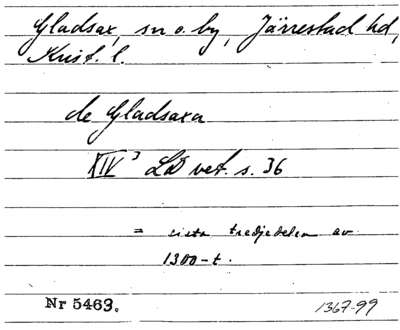 Gladsax, sn o. by, Järrestad hd,
Krist. l.
de Gladsaxa
XIV³ LD vet. s. 36
= sista tredjedelen av
1300-t.
Nr 5463.
1367-99